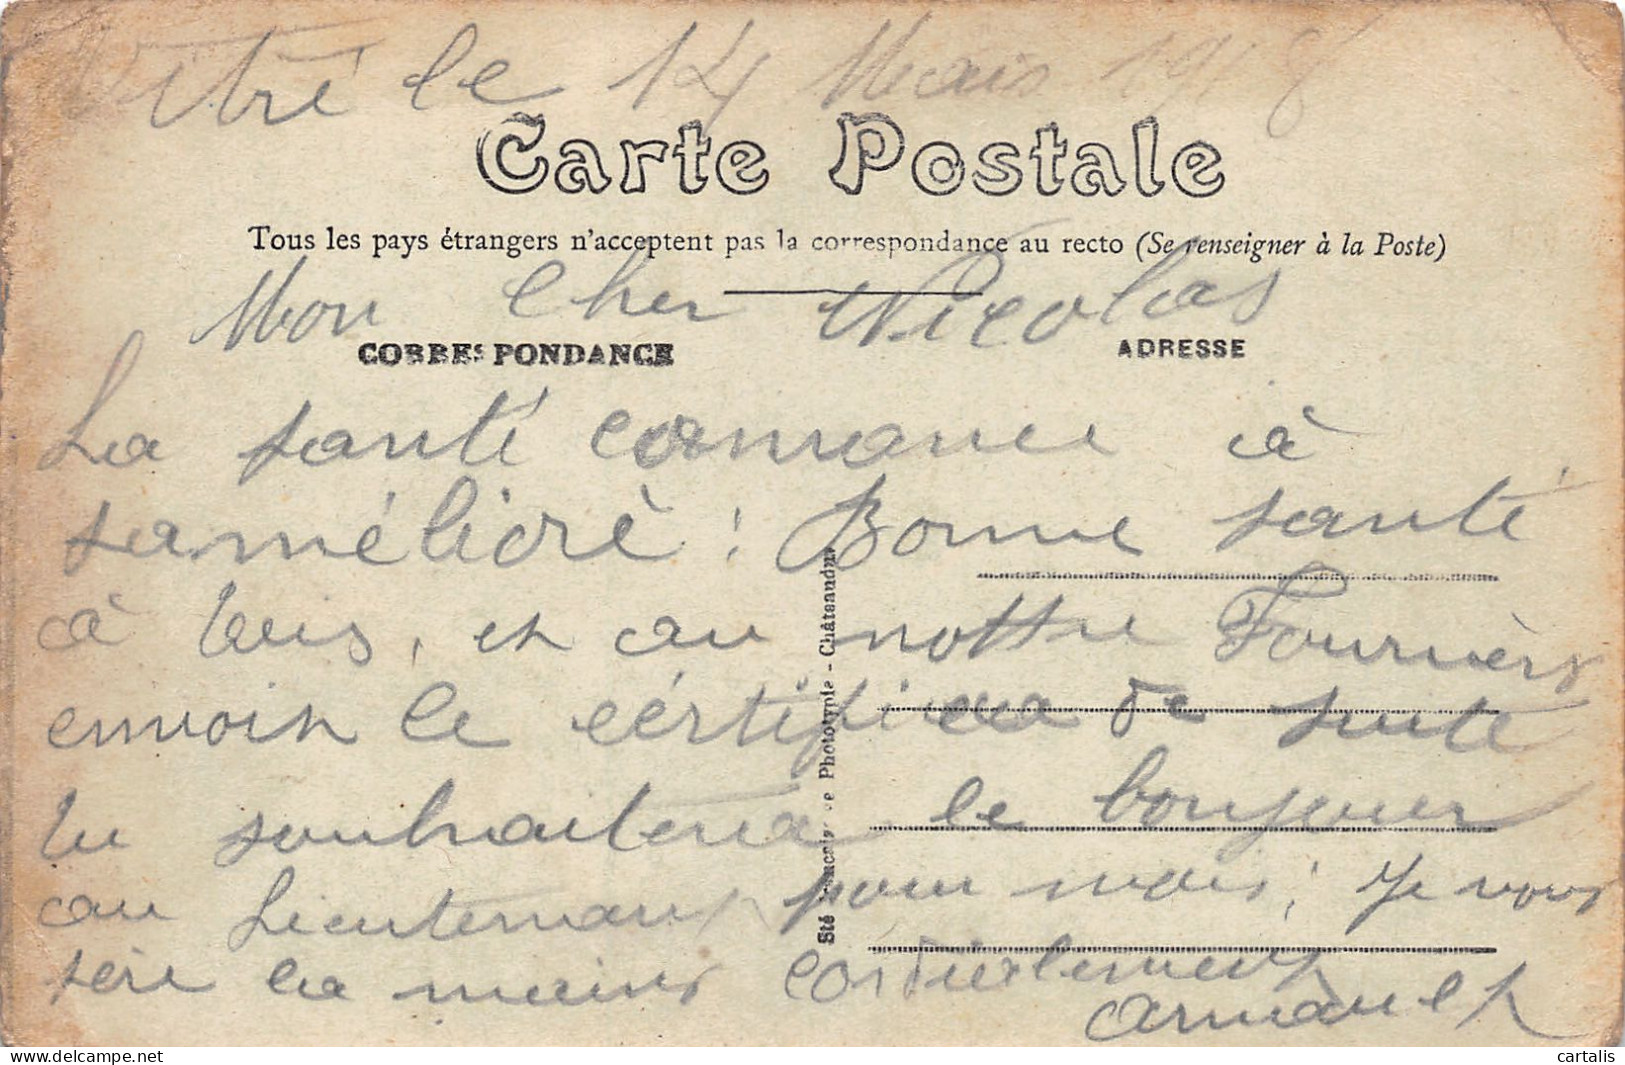 Vitré le 14 Mais 1918
Carte Postale
Tous les pays étrangers n'acceptent pas la correspondance au recto (Se renseigner à la Poste)
Mon Cher Nicolas
CORRESPONDANCE
ADRESSE
La santé commance à
saméliorè ! Bonne santé
à tous, et au nottre Fourrièrs
envoit le cértifica de suite
tu souhaitera le bonjour
au Lieutenant pour mois ; Je vous
sère la mains cordialement
arnault
Sté Française de Phototypie - Châteaudun
cartalis